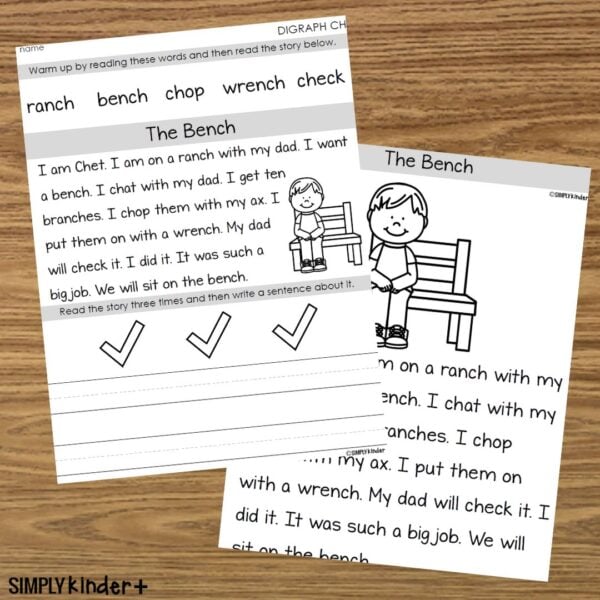 name
DIGRAPH CH
Warm up by reading these words and then read the story below.
ranch bench chop wrench check
The Bench
I am Chet. I am on a ranch with my dad. I want
a bench. I chat with my dad. I get ten
branches. I chop them with my ax. I
put them on with a wrench. My dad
will check it. I did it. It was such a
big job. We will sit on the bench.
Read the story three times and then write a sentence about it.
©SIMPLYkinder
The Bench
©SIMPLYkinder+
on a ranch with my
I chat with my
I chop
my ax. I put them on
with a wrench. My dad will check it. I
did it. It was such a big job. We will
sit on the bench.
SIMPLYkinder+